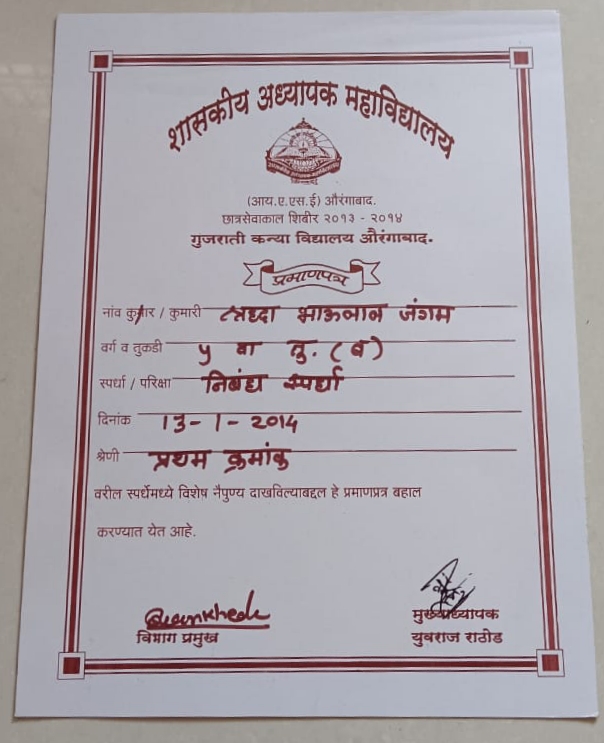 शासकीय अध्यापक महाविद्यालय
(आय.ए.एस.ई) औरंगाबाद.
छात्रसेवाकाल शिबीर २०१३ - २०१४
गुजराती कन्या विद्यालय औरंगाबाद.
प्रमाणपत्र
नांव कुमार / कुमारी श्रध्दा भाऊलाल जंगम
वर्ग व तुकडी ५ वा तु. (ब)
स्पर्धा / परिक्षा निबंध स्पर्धा
दिनांक 13-1-2014
श्रेणी प्रथम क्रमांक
वरील स्पर्धेमध्ये विशेष नैपुण्य दाखविल्याबद्दल हे प्रमाणप्रत्र बहाल
करण्यात येत आहे.
विभाग प्रमुख
मुख्याध्यापक
युवराज राठोड